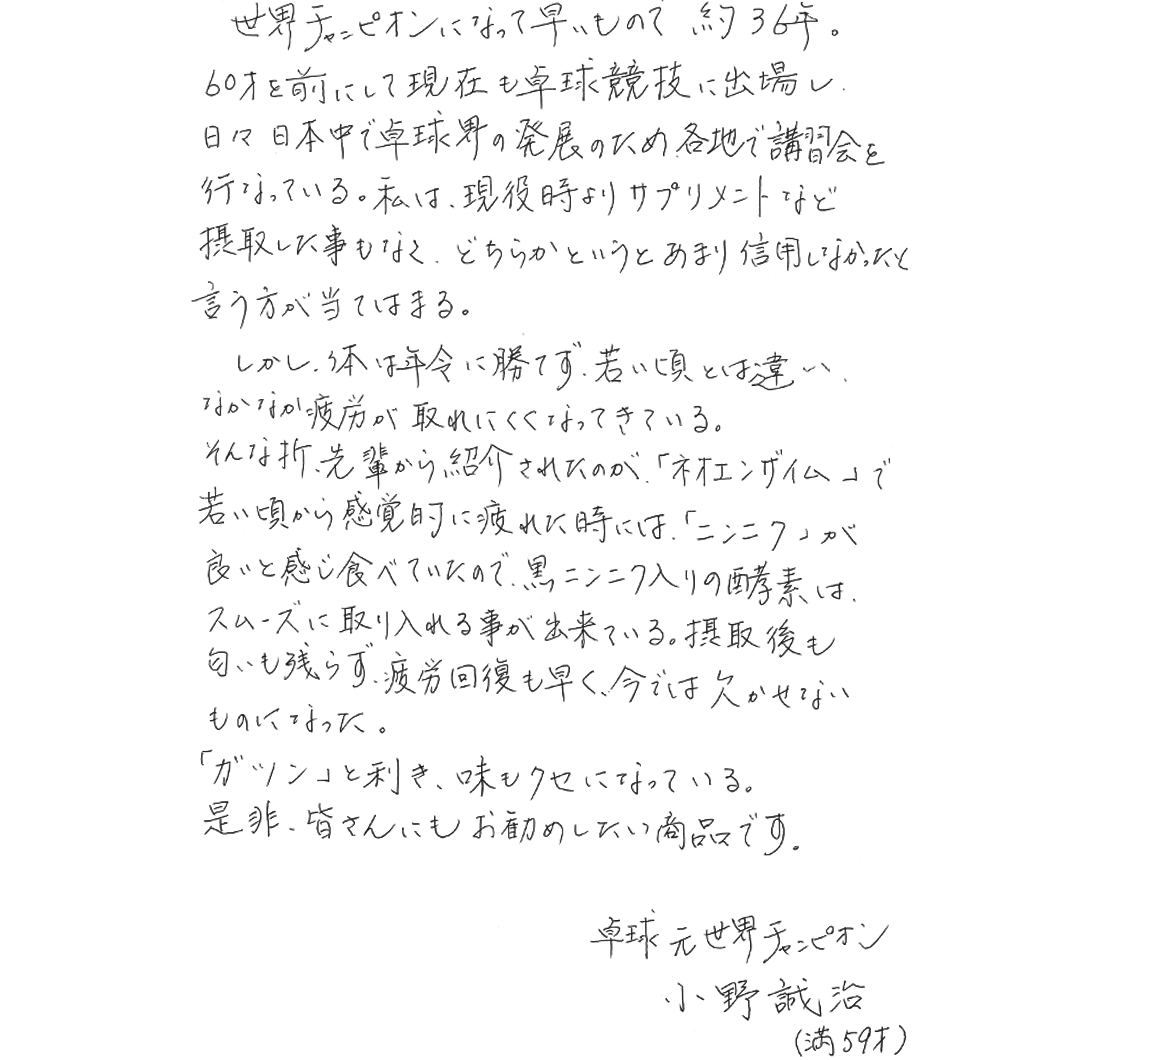 世界チャンピオンになって早いもので 約36年。
60才を前にして現在も卓球競技に出場し、
日々日本中で卓球界の発展のため、各地で講習会を
行なっている。私は、現役時よりサプリメントなど
摂取した事もなく、どちらかというとあまり信用しなかったと
言う方が当てはまる。
しかし、体は年令に勝てず、若い頃とは違い、
なかなか疲労が取れにくくなってきている。
そんな折、先輩から紹介されたのが、「ネオエンザイム」で
若い頃から感覚的に疲れた時には、「ニンニク」が
良いと感じ食べていたので、黒ニンニク入りの酵素は、
スムーズに取り入れる事が出来ている。摂取後も
匂いも残らず、疲労回復も早く、今では欠かせない
ものになった。
「ガツン」と利き、味もクセになっている。
是非、皆さんにもお勧めしたい商品です。
卓球 元世界チャンピオン
小野誠治
(満59才)